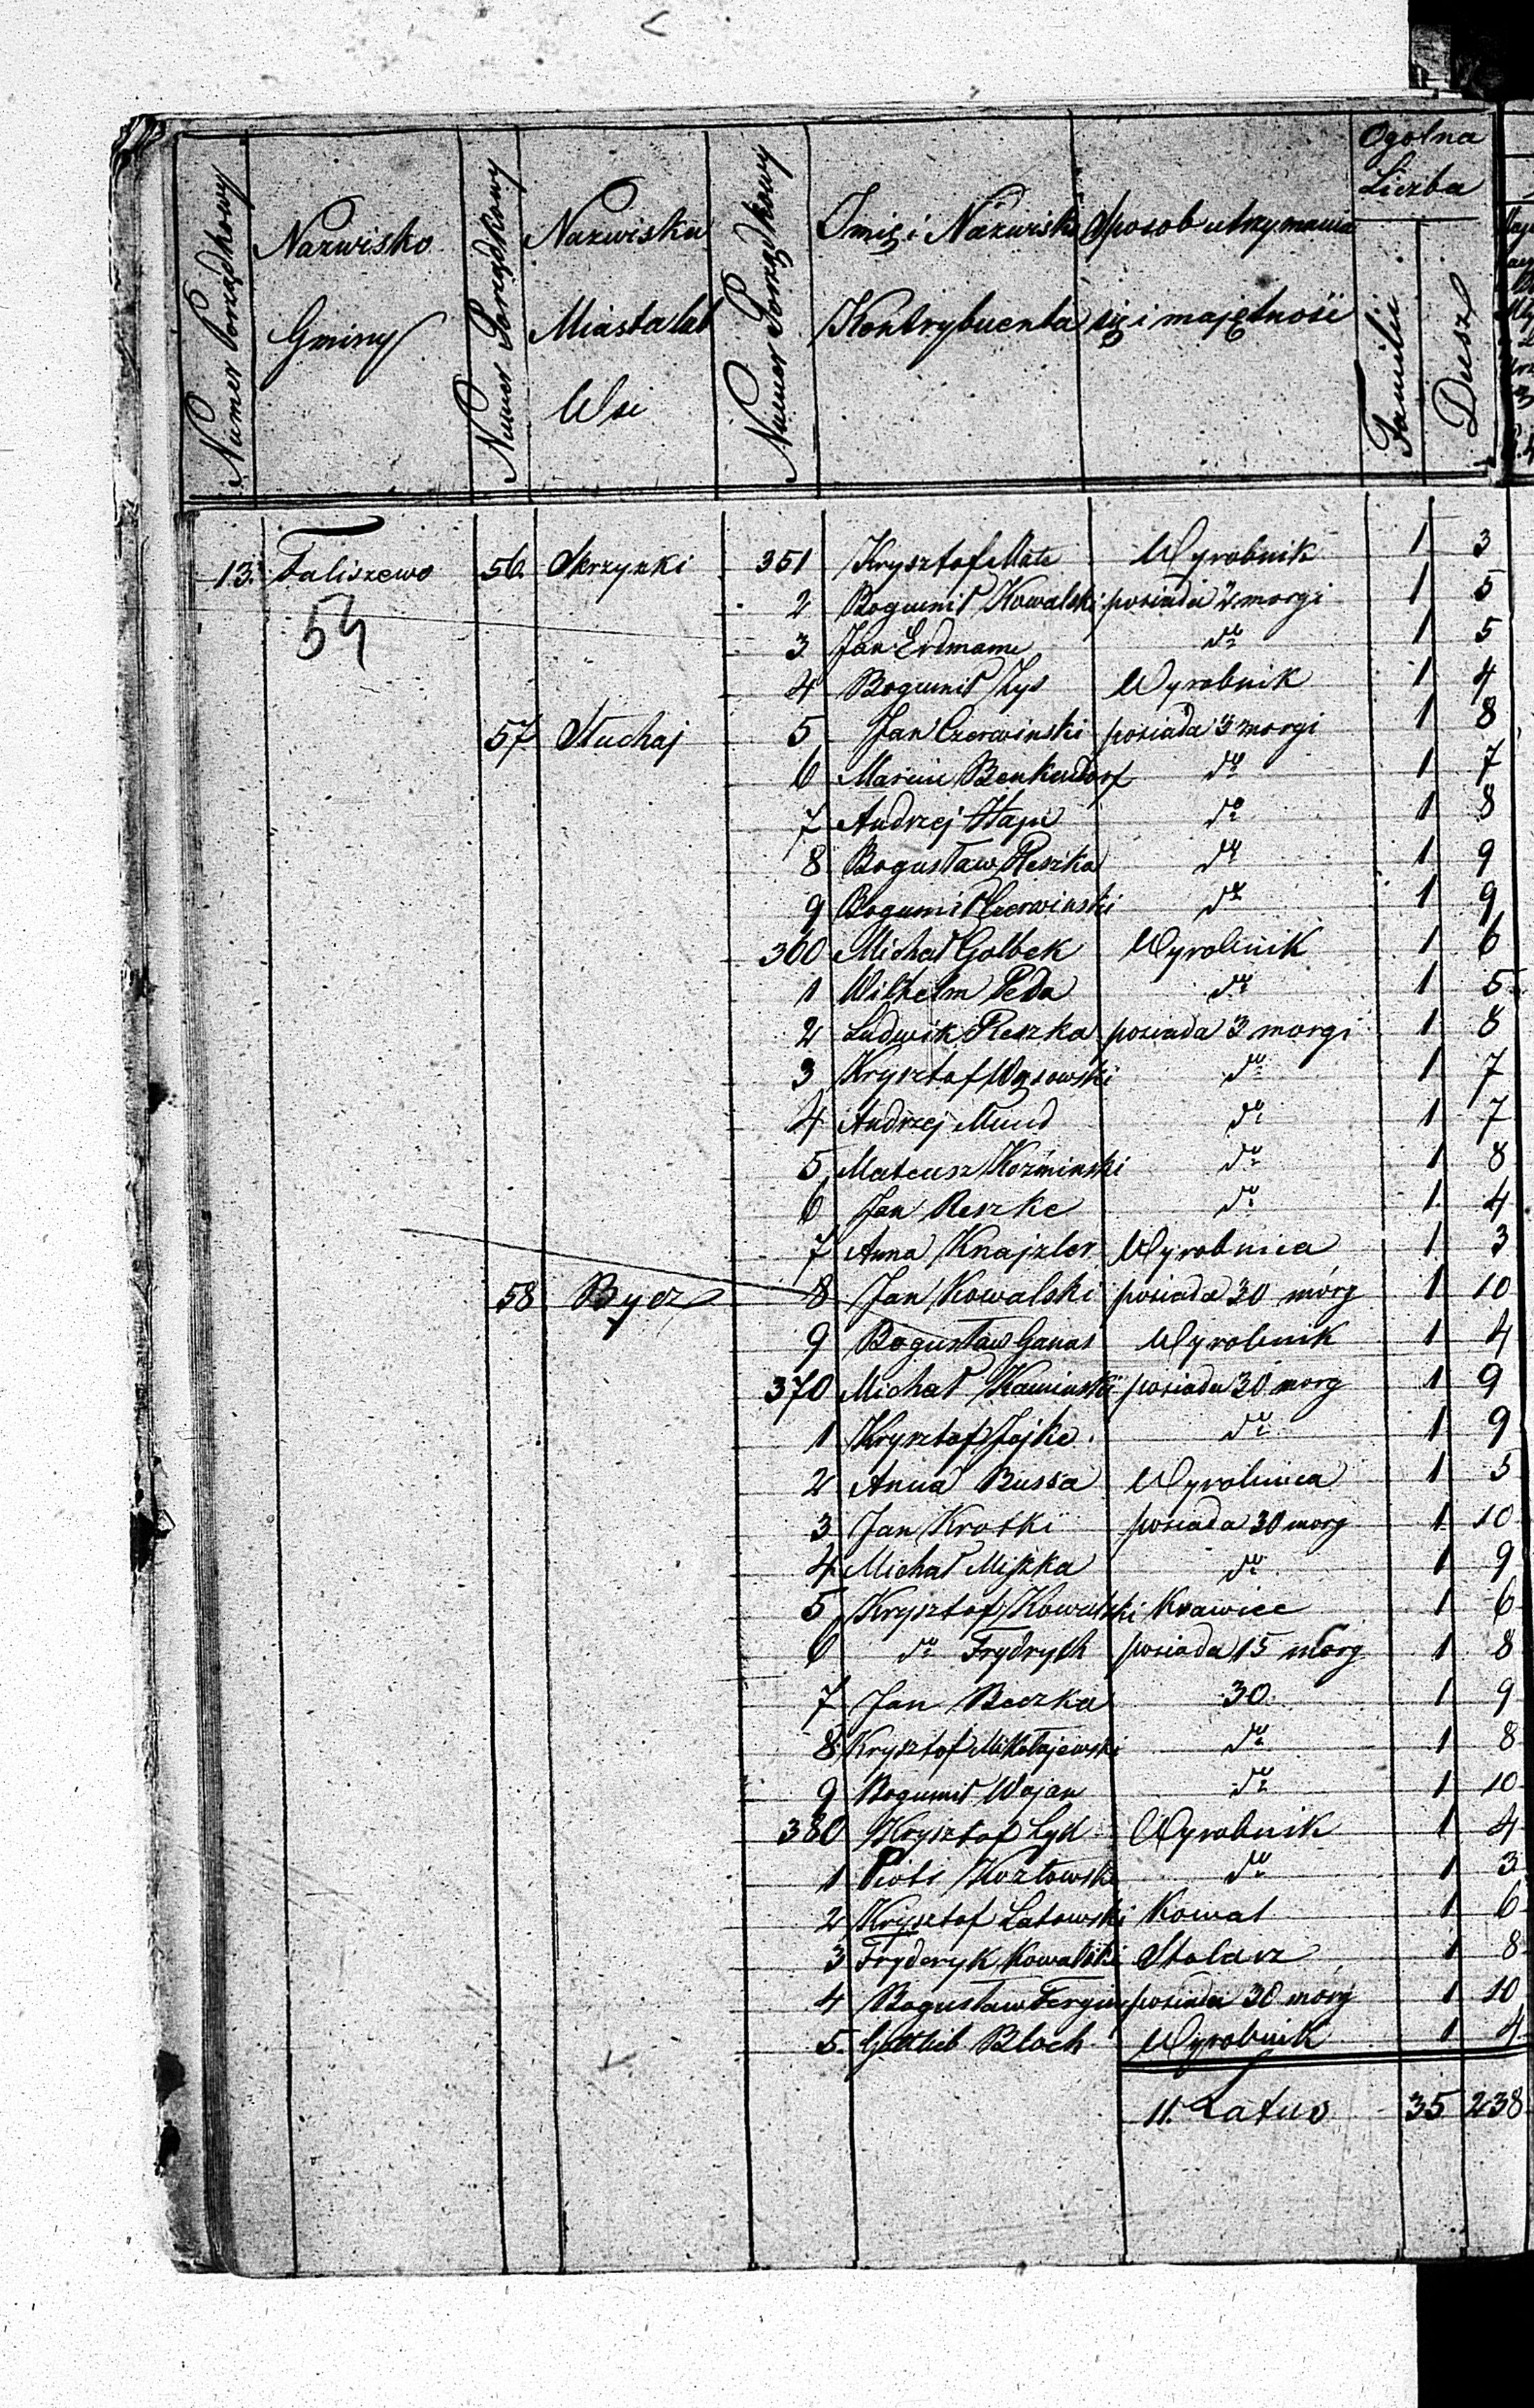 Numer Porządkowy | Nazwisko Gminy | Numer Porządkowy | Nazwisko Miasta lub Wsi | Numer Porządkowy | Imię i Nazwisko Kontrybuenta | Sposob utrzymania się i majętność | Ogolna Liczba | Familii | Dusz
13. Faliszewo 56. Skrzynki 351 Krysztof Wyrobnik 1 3
54
2 Bogumił Kowalski posiada 2 morgi 1 5
3 Jan Erdmann do 1 5
4 Bogumił Wyrobnik 1 4
57 Słuchaj 5 Jan Czerwinski posiada 3 morgi 1 8
6 Marcin Benkendorf do 1 7
7 Andrzej do 1 8
8 Bogusław Reszka do 1 9
9 Bogumił Czerwinski do 1 9
360 Michał Golbek Wyrobnik 1 6
1 Wilhelm Peda do 1 5
2 Ludwik Reszka posiada 3 morgi 1 8
3 Krysztof Wąsowski do 1 7
4 Andrzej Mund do 1 7
5 Mateusz Kozminski do 1 8
6 Jan Reszke do 1 4
7 Anna Knajzler Wyrobnica 1 3
58 Bycz 8 Jan Kowalski posiada 30 mórg 1 10
9 Bogusław Ganas Wyrobnik 1 4
370 Michał Kaminski posiada 30 morg 1 9
1 Krysztof Jojke do 1 9
2 Anna Bussa Wyrobnica 1 5
3 Jan Krotki posiada 30 morg 1 10
4 Michał Miszka do 1 9
5 Krysztof Kowalski Krawiec 1 6
6 do Frydrych posiada 15 morg 1 8
7 Jan Beczka 30 1 9
8 Krysztof Mikołajewski do 1 8
9 Bogumił Wojan do 1 10
380 Krysztof Lyd Wyrobnik 1 4
1 Piotr Kozłowski do 1 3
2 Krysztof Latowski Kowal 1 6
3 Fryderyk Kowalski Stolarz 1 8
4 Bogusław posiada 30 mórg 1 10
5. Gottlieb Bloch Wyrobnik 1 4
11. Latus 35 238